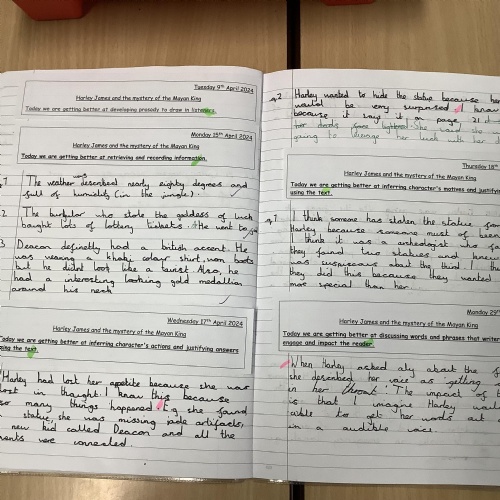 Tuesday 9th April 2024
Harley James and the mystery of the Mayan King
Today we are getting better at developing prosody to draw in listeners.
Monday 15th April 2024
Harley James and the mystery of the Mayan King
Today we are getting better at retrieving and recording information.
The weather was described nearly eighty degrees and
full of humidity (in the jungle).
2 The burgular who stole the goddess of luck
baught lots of lottery tickets. He went to
3 Deacon definetly had a british accent. He
was wearing a khaki colour shirt, worn boots
but he didnt look like a tourist. Also, he
had a interesting looking gold medallion
around his neck.
Wednesday 17th April 2024
Harley James and the mystery of the Mayan King
Today we are getting better at inferring character's actions and justifying answers
using the text.
Harley had lost her appetite because she was
lost in thought. I know this because
so many things happened E.g she found
statue, she was missing jade artifacts,
new kid called Deacon and all the
events were connected.
Q2 Harley wanted to hide the statue because her
would be very surprised. I know
because it says it on page 21 it
her dad's face tightened. She said she
going to change her luck with her d
Thursday 18th
Harley James and the mystery of the Mayan
Today we are getting better at inferring character's motives and justifying
using the text.
Q1 I think someone has stolen the statue from
Harley because someone must of been
I think it was a archeologist who
they found two statues and knew
was suspicous about the third. I
they did this because they wanted
more special than her.
Monday 29th
Harley James and the mystery of the Mayan King
Today we are getting better at discussing words and phrases that writers
engage and impact the reader.
When Harley asked about the
she described her voice as getting
in her throat. The impact of
is that I imagine Harley
able to get her words out
in a audible voice.